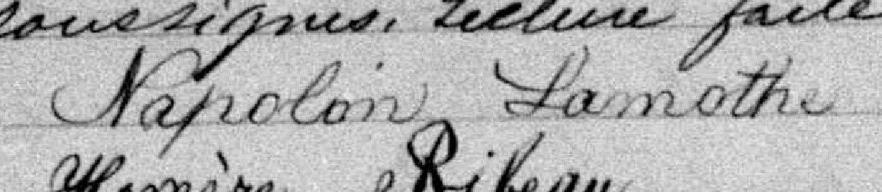 soussignés. Lecture faite
Napolon Lamothe
Homère Ribeau